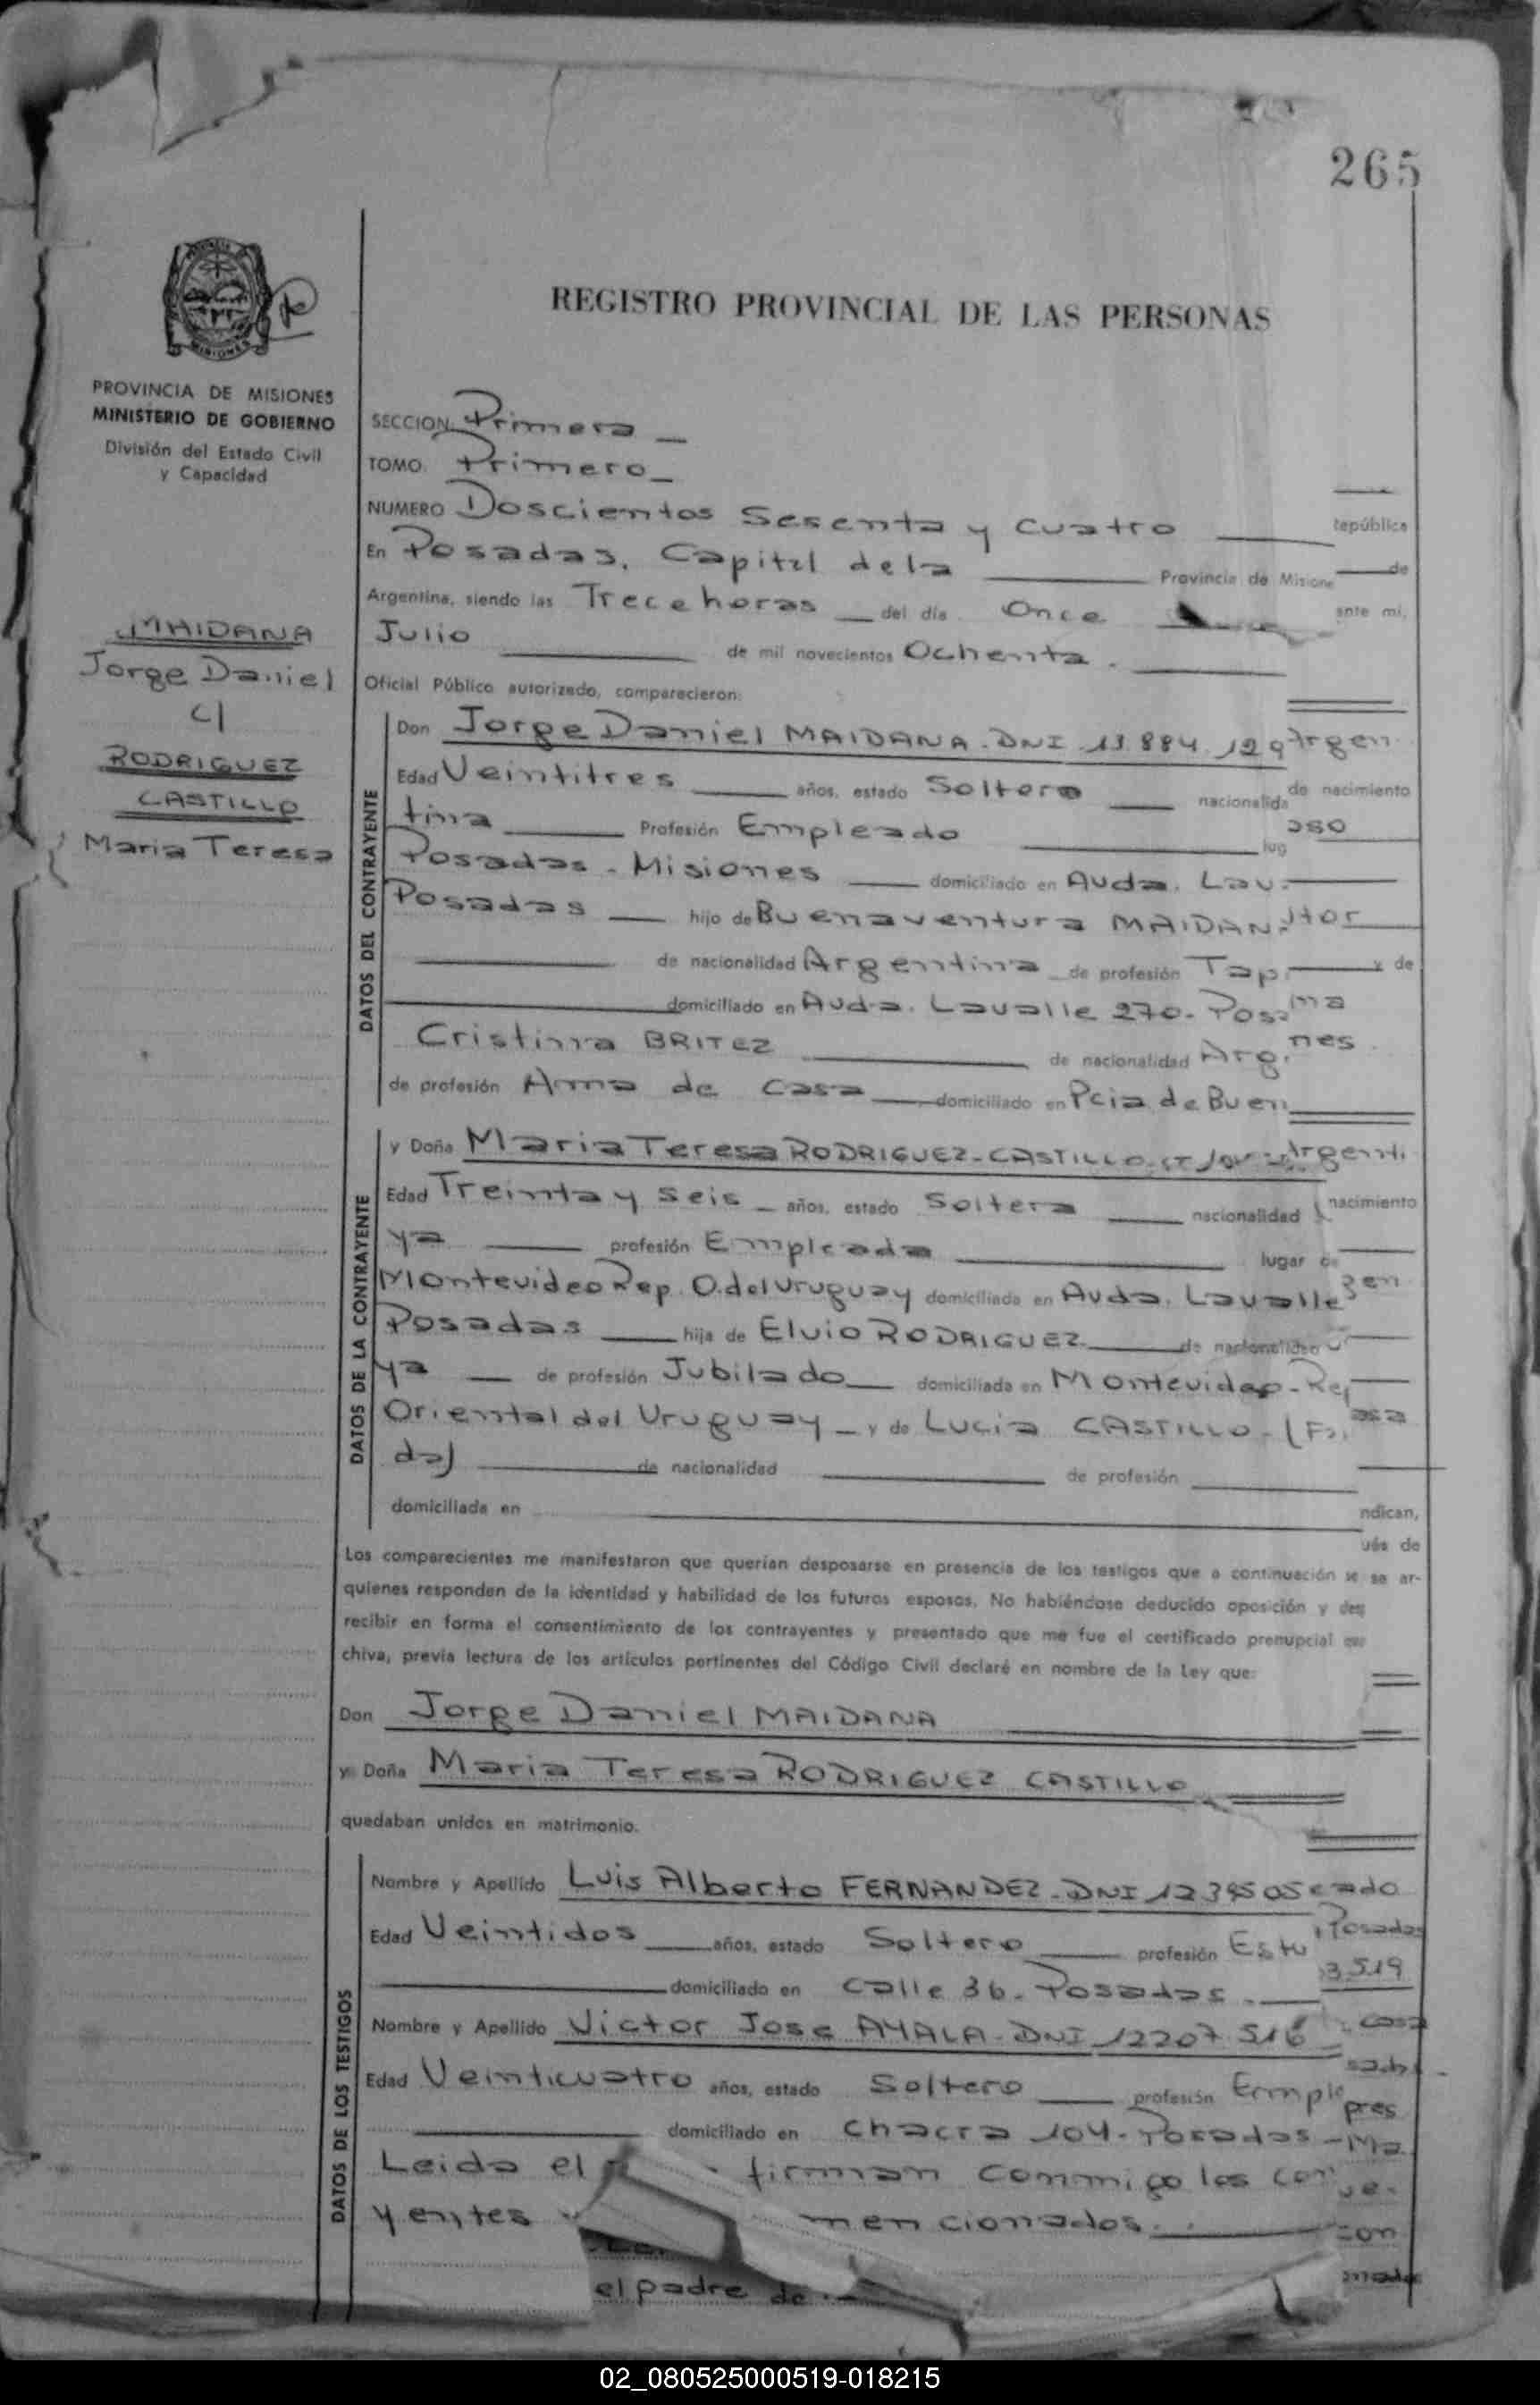 265
REGISTRO PROVINCIAL DE LAS PERSONAS
MISIONES
PROVINCIA DE MISIONES
MINISTERIO DE GOBIERNO
División del Estado Civil
y Capacidad
MAIDANA
Jorge Daniel
c/
RODRIGUEZ
CASTILLO
Maria Teresa
SECCION Primera
TOMO Primero
NUMERO Doscientos Sesenta y Cuatro
En Posadas, Capital de la Provincia de Misione
Argentina, siendo las Trece horas del día Once
Julio de mil novecientos Ochenta.
Oficial Público autorizado, comparecieron:
DATOS DEL CONTRAYENTE
Don Jorge Daniel MAIDANA - DNI. 13.884.129
Edad Veintitres años, estado Soltero nacionalida
tina Profesión Empleado lug
Posadas - Misiones domiciliado en Avda. Lav
Posadas hijo de Buenaventura MAIDAN
de nacionalidad Argentina de profesión Tap
domiciliado en Avda. Lavalle 270. Pos
Cristina BRITEZ de nacionalidad Arg
de profesión Ama de Casa domiciliado en Pcia de Buen
DATOS DE LA CONTRAYENTE
y Doña Maria Teresa RODRIGUEZ-CASTILLO
Edad Treinta y Seis años, estado Soltera nacionalidad
ya profesión Empleada lugar
Montevideo Rep. O. del Uruguay domiciliada en Avda. Lavalle
Posadas hija de Elvio RODRIGUEZ de nacionalidad
ya de profesión Jubilado domiciliada en Montevideo - Rep
Oriental del Uruguay y de Lucia CASTILLO - (Fa
da) de nacionalidad de profesión
domiciliada en
Los comparecientes me manifestaron que querían desposarse en presencia de los testigos que a continuación se
quienes responden de la identidad y habilidad de los futuros esposos. No habiéndose deducido oposición y des
recibir en forma el consentimiento de los contrayentes y presentado que me fue el certificado prenupcial que
chiva, previa lectura de los artículos pertinentes del Código Civil declaré en nombre de la Ley que:
Don Jorge Daniel MAIDANA
y Doña Maria Teresa RODRIGUEZ CASTILLO
quedaban unidos en matrimonio.
DATOS DE LOS TESTIGOS
Nombre y Apellido Luis Alberto FERNANDEZ - DNI
Edad Veintidos años, estado Soltero profesión Estu
domiciliado en Calle 36 - Posadas
Nombre y Apellido Victor Jose AYALA - DNI 12207.516
Edad Veinticuatro años, estado Soltero profesión Emple
domiciliado en Chacra 104 - Posadas
Leida el firman conmigo los con
yentes mencionados.
el padre de
epública
de
ante mi,
Argen
de nacimiento
tor
y de
ma
nes
Argenti
nacimiento
gen
asa
ndican,
ués de
se ar-
eado
Posadas
3.519
casa
pres
Ma
con
02_080525000519-018215